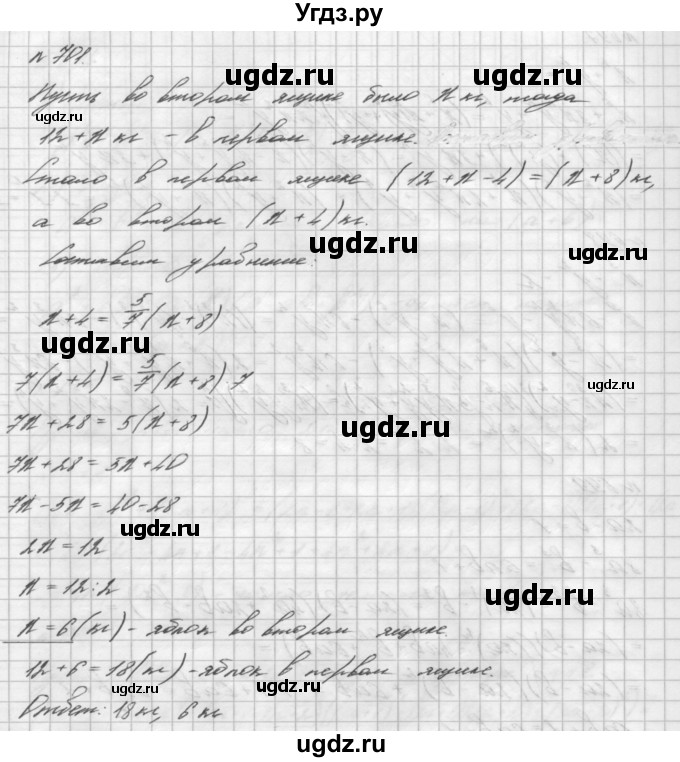 Угдз.ру
n 701.
Пусть во втором ящике было x кг, тогда
12+x кг - в первом ящике.
Стало в первом ящике (12+x-4)=(x+8)кг,
а во втором (x+4)кг.
Составим уравнение:
x+4 = 5/7 (x+8)
7(x+4) = 5/7 (x+8)·7
7x+28 = 5(x+8)
7x+28 = 5x+40
7x-5x = 40-28
2x = 12
x = 12:2
x = 6(кг) - яблок во втором ящике.
12+6 = 18(кг) - яблок в первом ящике.
Ответ: 18кг, 6кг
ugdz.ru
ugdz.ru
ugdz.ru
ugdz.ru
ugdz.ru
ugdz.ru
ugdz.ru
ugdz.ru
ugdz.ru
ugdz.ru
ugdz.ru
ugdz.ru
ugdz.ru
ugdz.ru